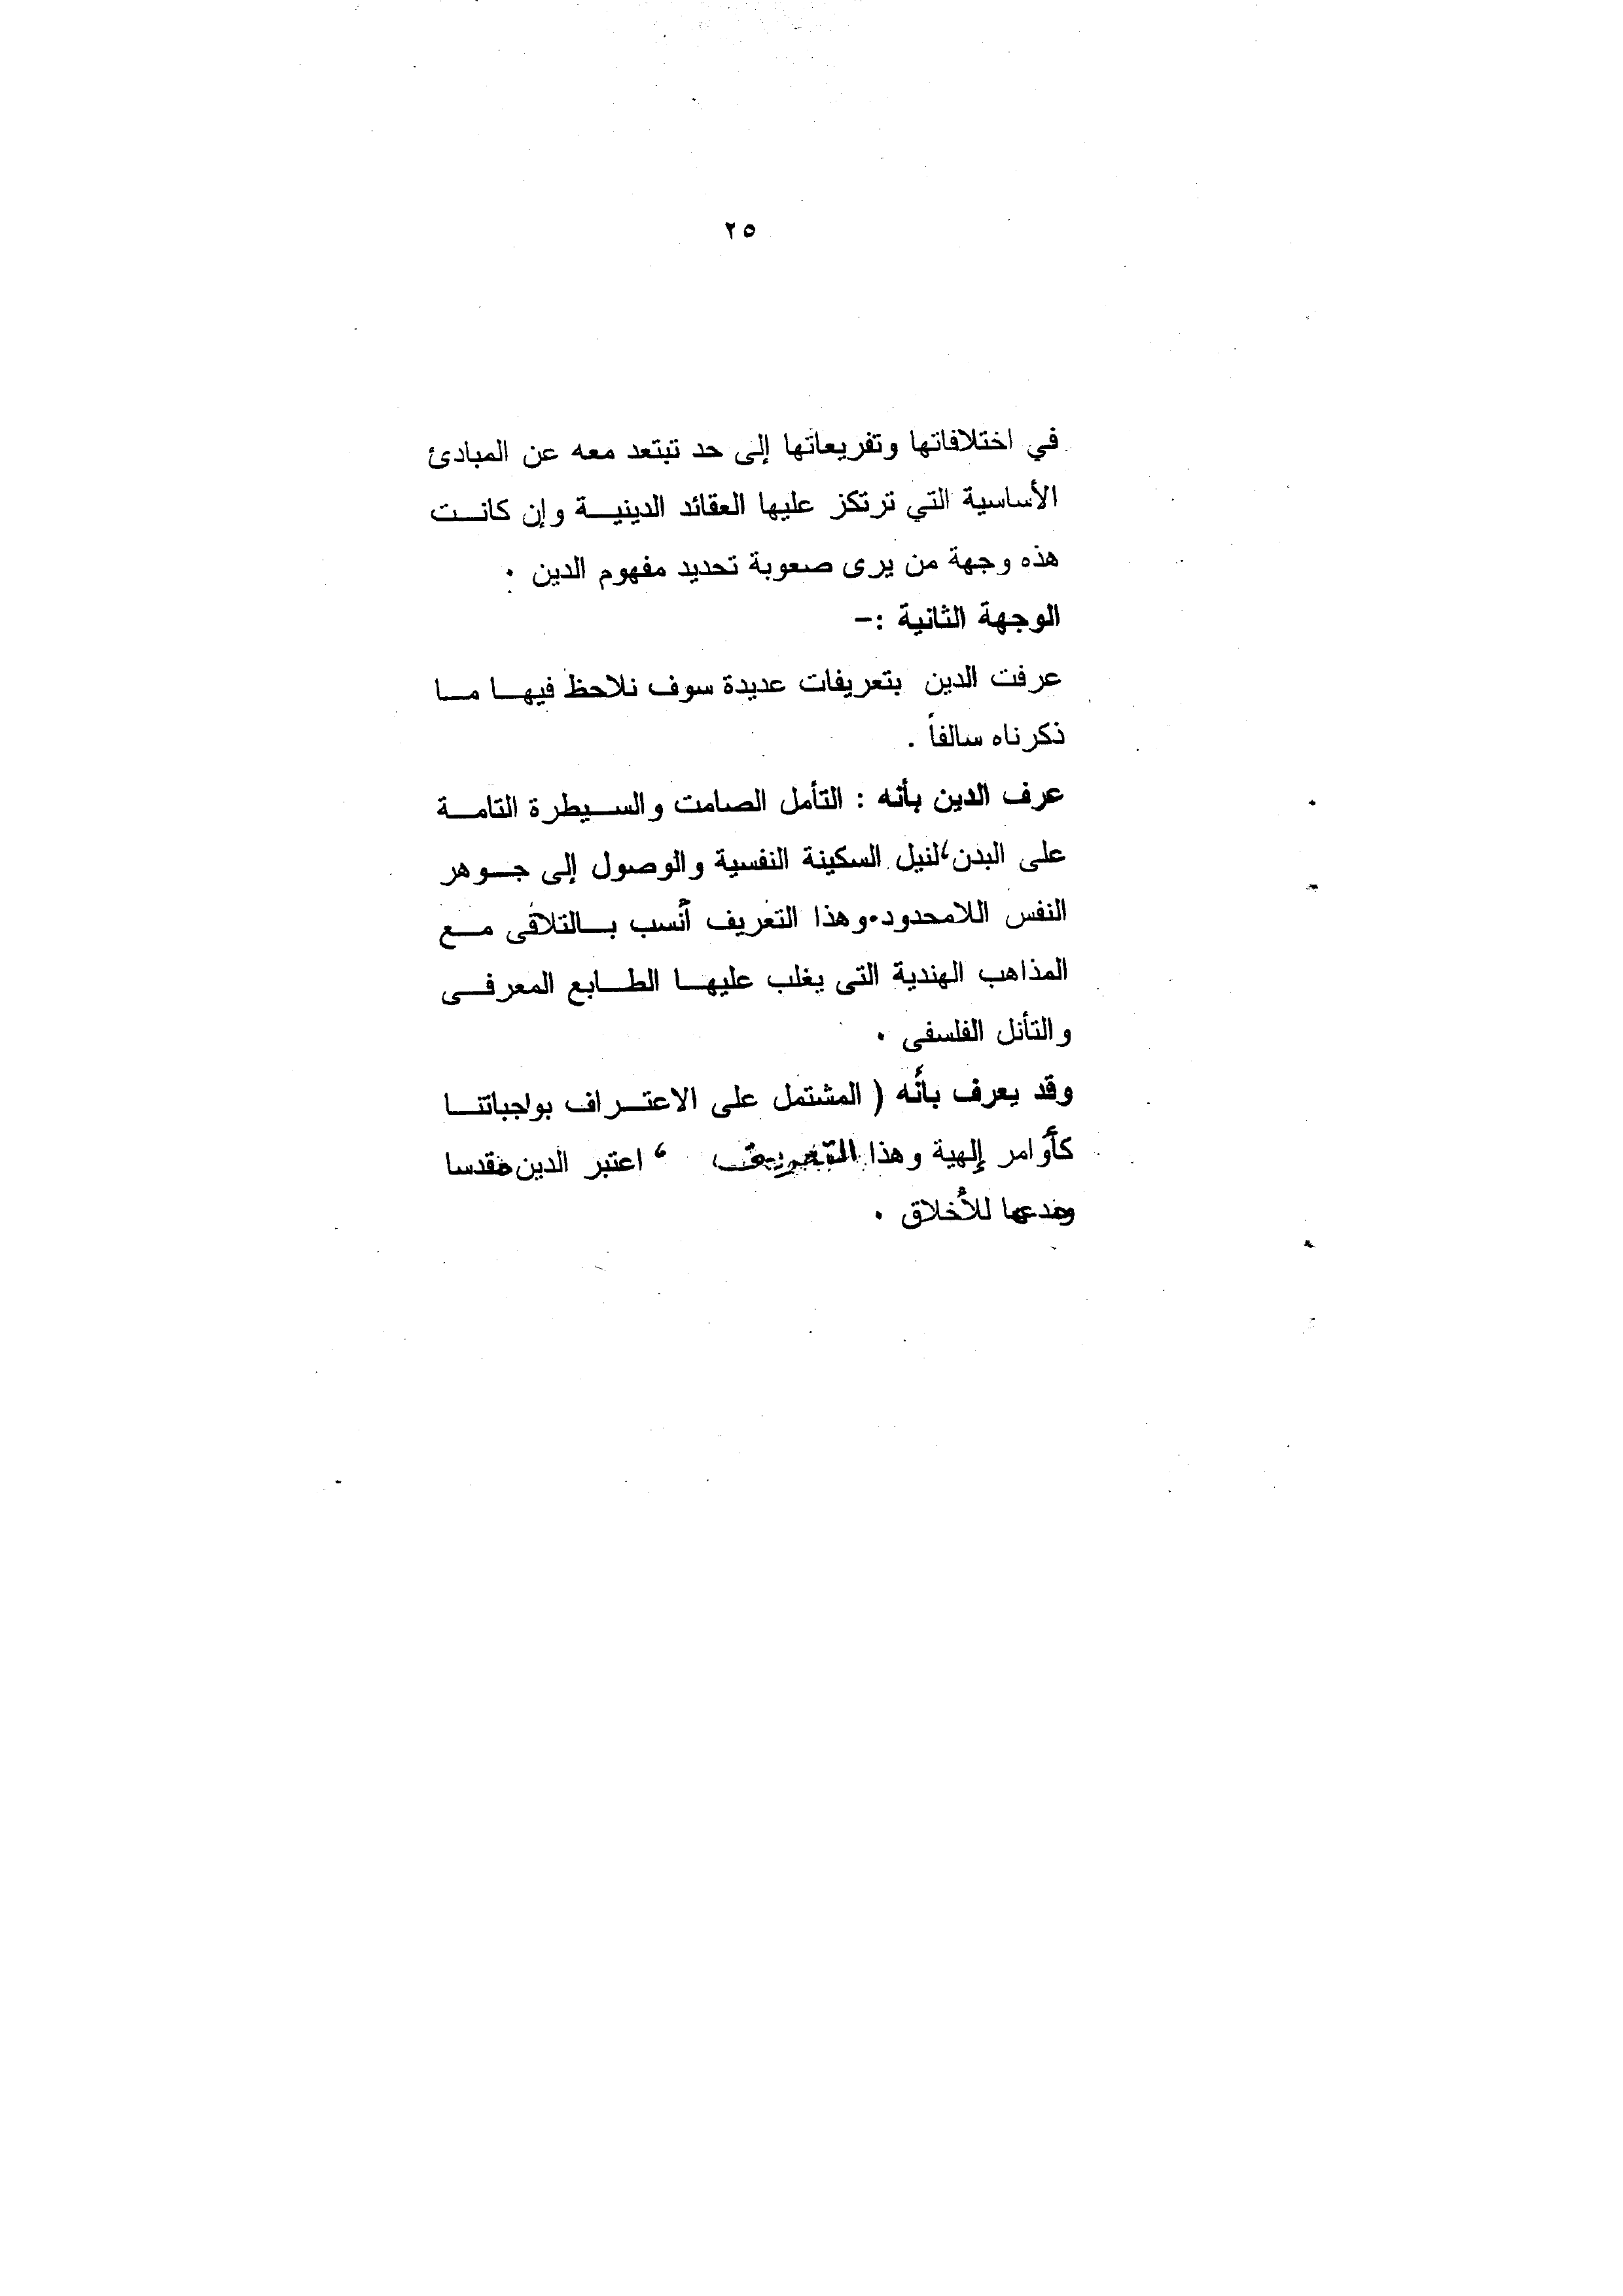 ٢٥
في اختلافاتها وتفريعاتها إلى حد تبتعد معه عن المبادئ
الأساسية التي ترتكز عليها العقائد الدينية وإن كانت
هذه وجهة من يرى صعوبة تحديد مفهوم الدين .
الوجهة الثانية :-
عرفت الدين بتعريفات عديدة سوف نلاحظ فيها ما
ذكرناه سالفاً .
عرف الدين بأنه : التأمل الصامت والسيطرة التامة
على البدن، لنيل السكينة النفسية والوصول إلى جوهر
النفس اللامحدود. وهذا التعريف أنسب بالتلاقى مع
المذاهب الهندية التى يغلب عليها الطابع المعرفى
والتأنل الفلسفى .
وقد يعرف بأنه ( المشتمل على الاعتراف بواجباتنا
كأوامر إلهية وهذا التعريف ، اعتبر الدين مقدسا
للأخلاق .